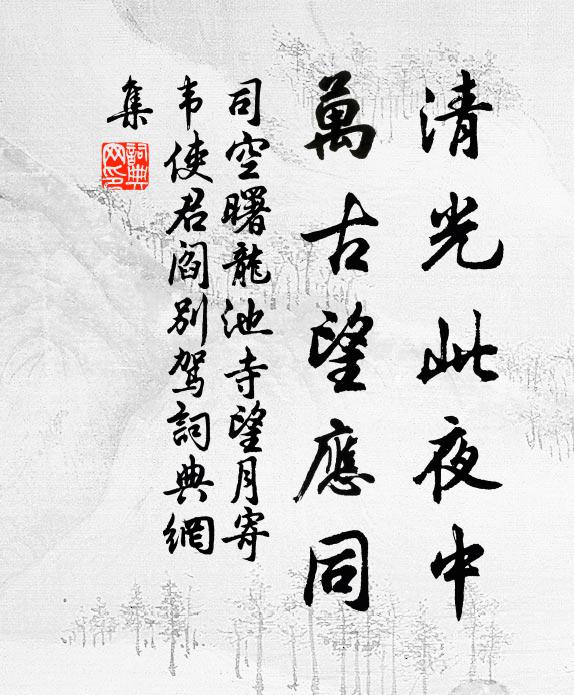 清光此夜中
萬古望應同
司空曙龍池寺望月寄
韦使君閻別駕詞典網
集
詞典
网印